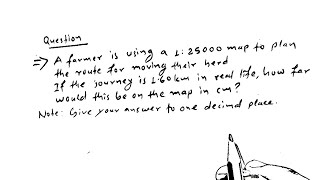 Question
=> A farmer is using a 1:25000 map to plan
the route for moving their herd
If the journey is 1.60km in real life, how far
would this be on the map in cm?
Note: Give your answer to one decimal place.